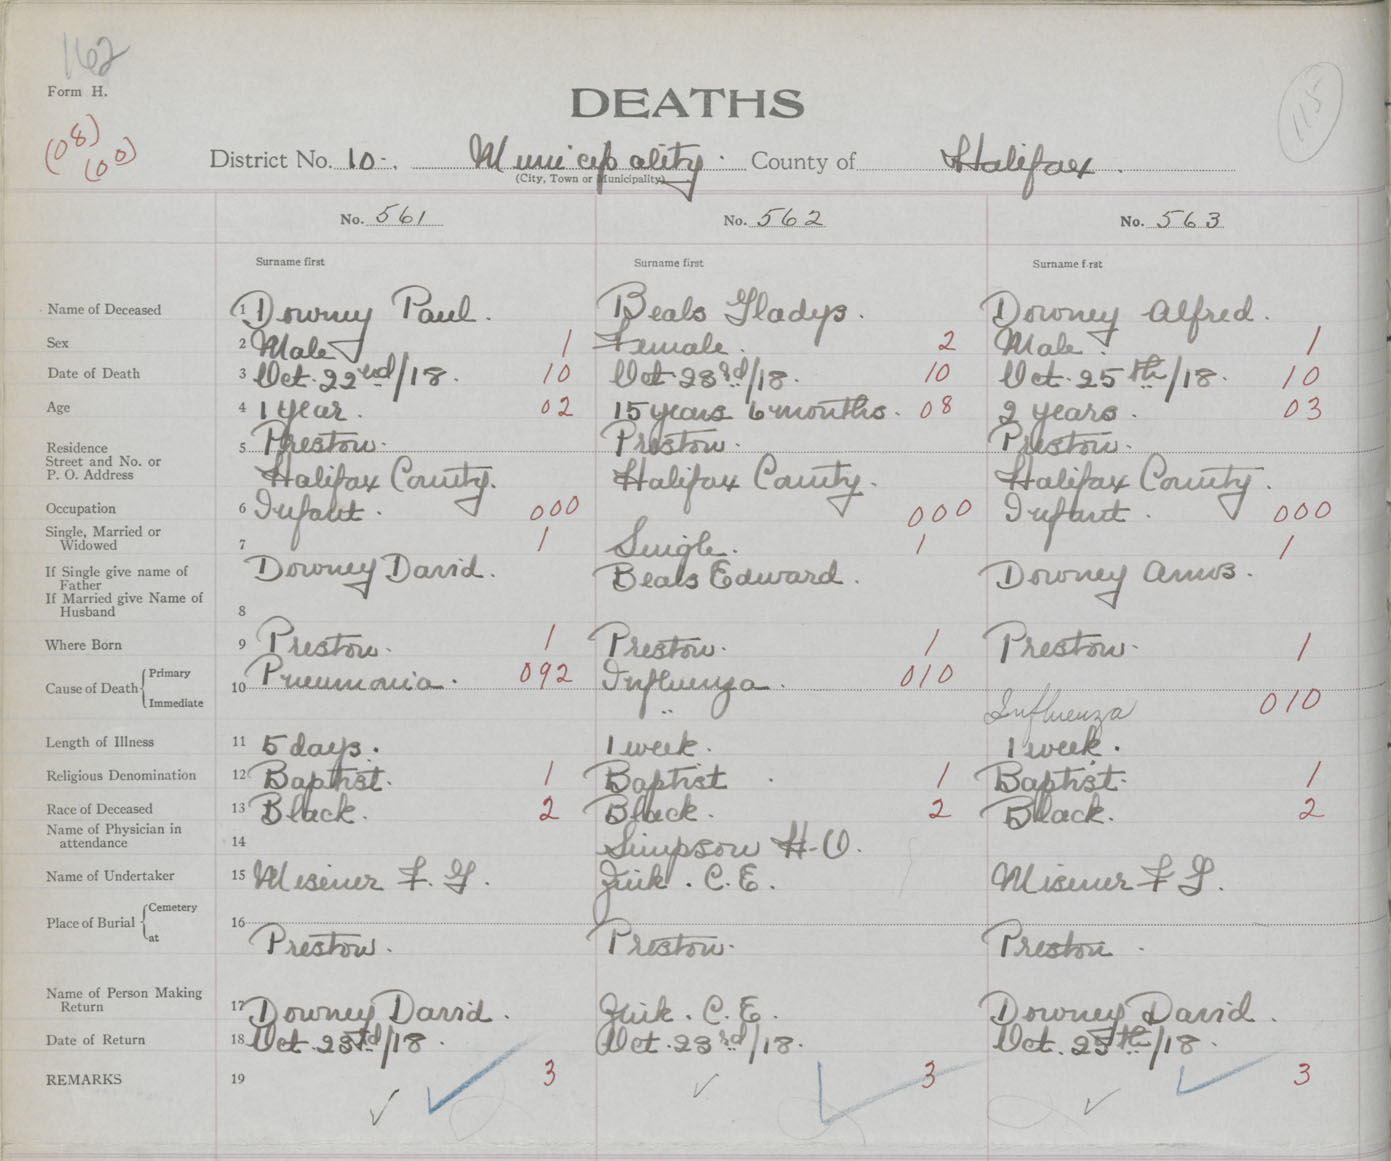 162
Form H.
DEATHS
115
(08)
(00)
District No. 10-, Municipality. County of Halifax.
(City, Town or Municipality)
No. 561 No. 562 No. 563
Surname first Surname first Surname first
Name of Deceased 1 Downey Paul. Beals Gladys. Downey Alfred.
Sex 2 Male 1 Female. 2 Male. 1
Date of Death 3 Oct. 22nd/18. 10 Oct. 23rd/18. 10 Oct. 25th/18. 10
Age 4 1 year. 02 15 years 6 months. 08 2 years. 03
Residence 5 Preston. Preston. Preston.
Street and No. or
P. O. Address Halifax County. Halifax County. Halifax County.
Occupation 6 Infant. 000 000 Infant. 000
Single, Married or
Widowed 7 1 Single. 1 1
If Single give name of Father Downey David. Beals Edward. Downey Amos.
If Married give Name of Husband 8
Where Born 9 Preston. 1 Preston. 1 Preston. 1
Cause of Death Primary Pneumonia. 092 Influenza. 010
10
Immediate Influenza 010
Length of Illness 11 5 days. 1 week. 1 week.
Religious Denomination 12 Baptist. 1 Baptist. 1 Baptist. 1
Race of Deceased 13 Black. 2 Black. 2 Black. 2
Name of Physician in
attendance 14 Simpson H.O.
Name of Undertaker 15 Misener F. G. C. E. Misener F G.
Place of Burial Cemetery
16
at Preston. Preston. Preston.
Name of Person Making
Return 17 Downey David. C. E. Downey David.
Date of Return 18 Oct. 23rd/18. Oct. 23rd/18. Oct. 25th/18.
REMARKS 19 3 3 3